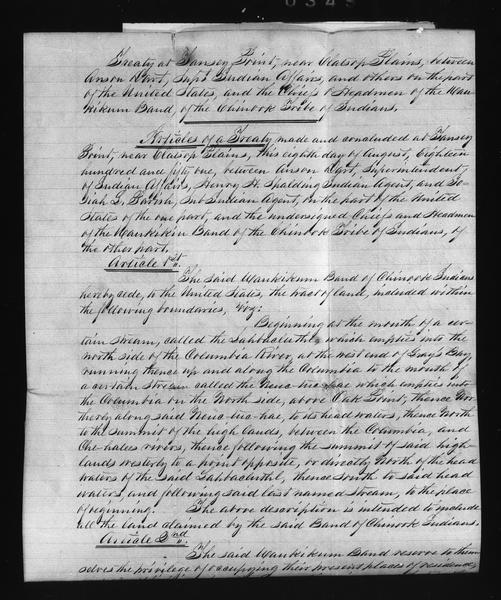 Treaty at Tansey Point, near Clatsop Plains, between
Anson Dart, Supt Indian Affairs, and others on the part
of the United States, and the Chiefs & Headmen of the Wau-
kikum Band, of the Chinook Tribe of Indians.
Articles of a Treaty made and concluded at Tansey
Point, near Clatsop Plains, this eighth day of August, Eighteen
hundred and fifty one, between Anson Dart, Superintendent
of Indian Affairs, Henry H. Spalding Indian Agent, and Jo-
siah L. Parrish, Sub Indian Agent, on the part of the United
States of the one part, and the undersigned Chiefs and Headmen
of the Waukikin Band of the Chinook Tribe of Indians, of
the other part.
Article 1st.
The said Waukikum Band of Chinook Indians
hereby cede, to the United States, the tract of land, included within
the following boundaries, Viz:
Beginning at the mouth of a cer-
tain stream, called the which empties into the
north side of the Columbia River, at the west end of Gray's Bay,
running thence up and along the Columbia to the mouth of
a certain stream called the which empties into
the Columbia on the North side, above Oak Point, thence Nor-
therly along said to its head waters, thence North
to the summit of the high lands, between the Columbia, and
Che-hales rivers, thence following the summit of said high-
lands westerly to a point opposite, or directly North of the head
waters of the said thence South to said head
waters, and following said last named stream, to the place
of beginning. The above description is intended to include
all the land claimed by the said Band of Chinook Indians.
Article 2nd.
The said Waukikum Band reserve to them-
selves the privilege of occupying their present places of residence,